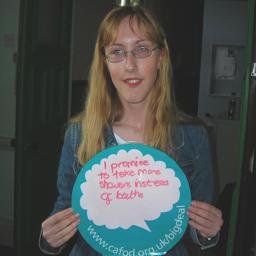 I promise
to take more
showers instead
of baths
www.cafod.org.uk/bigdeal